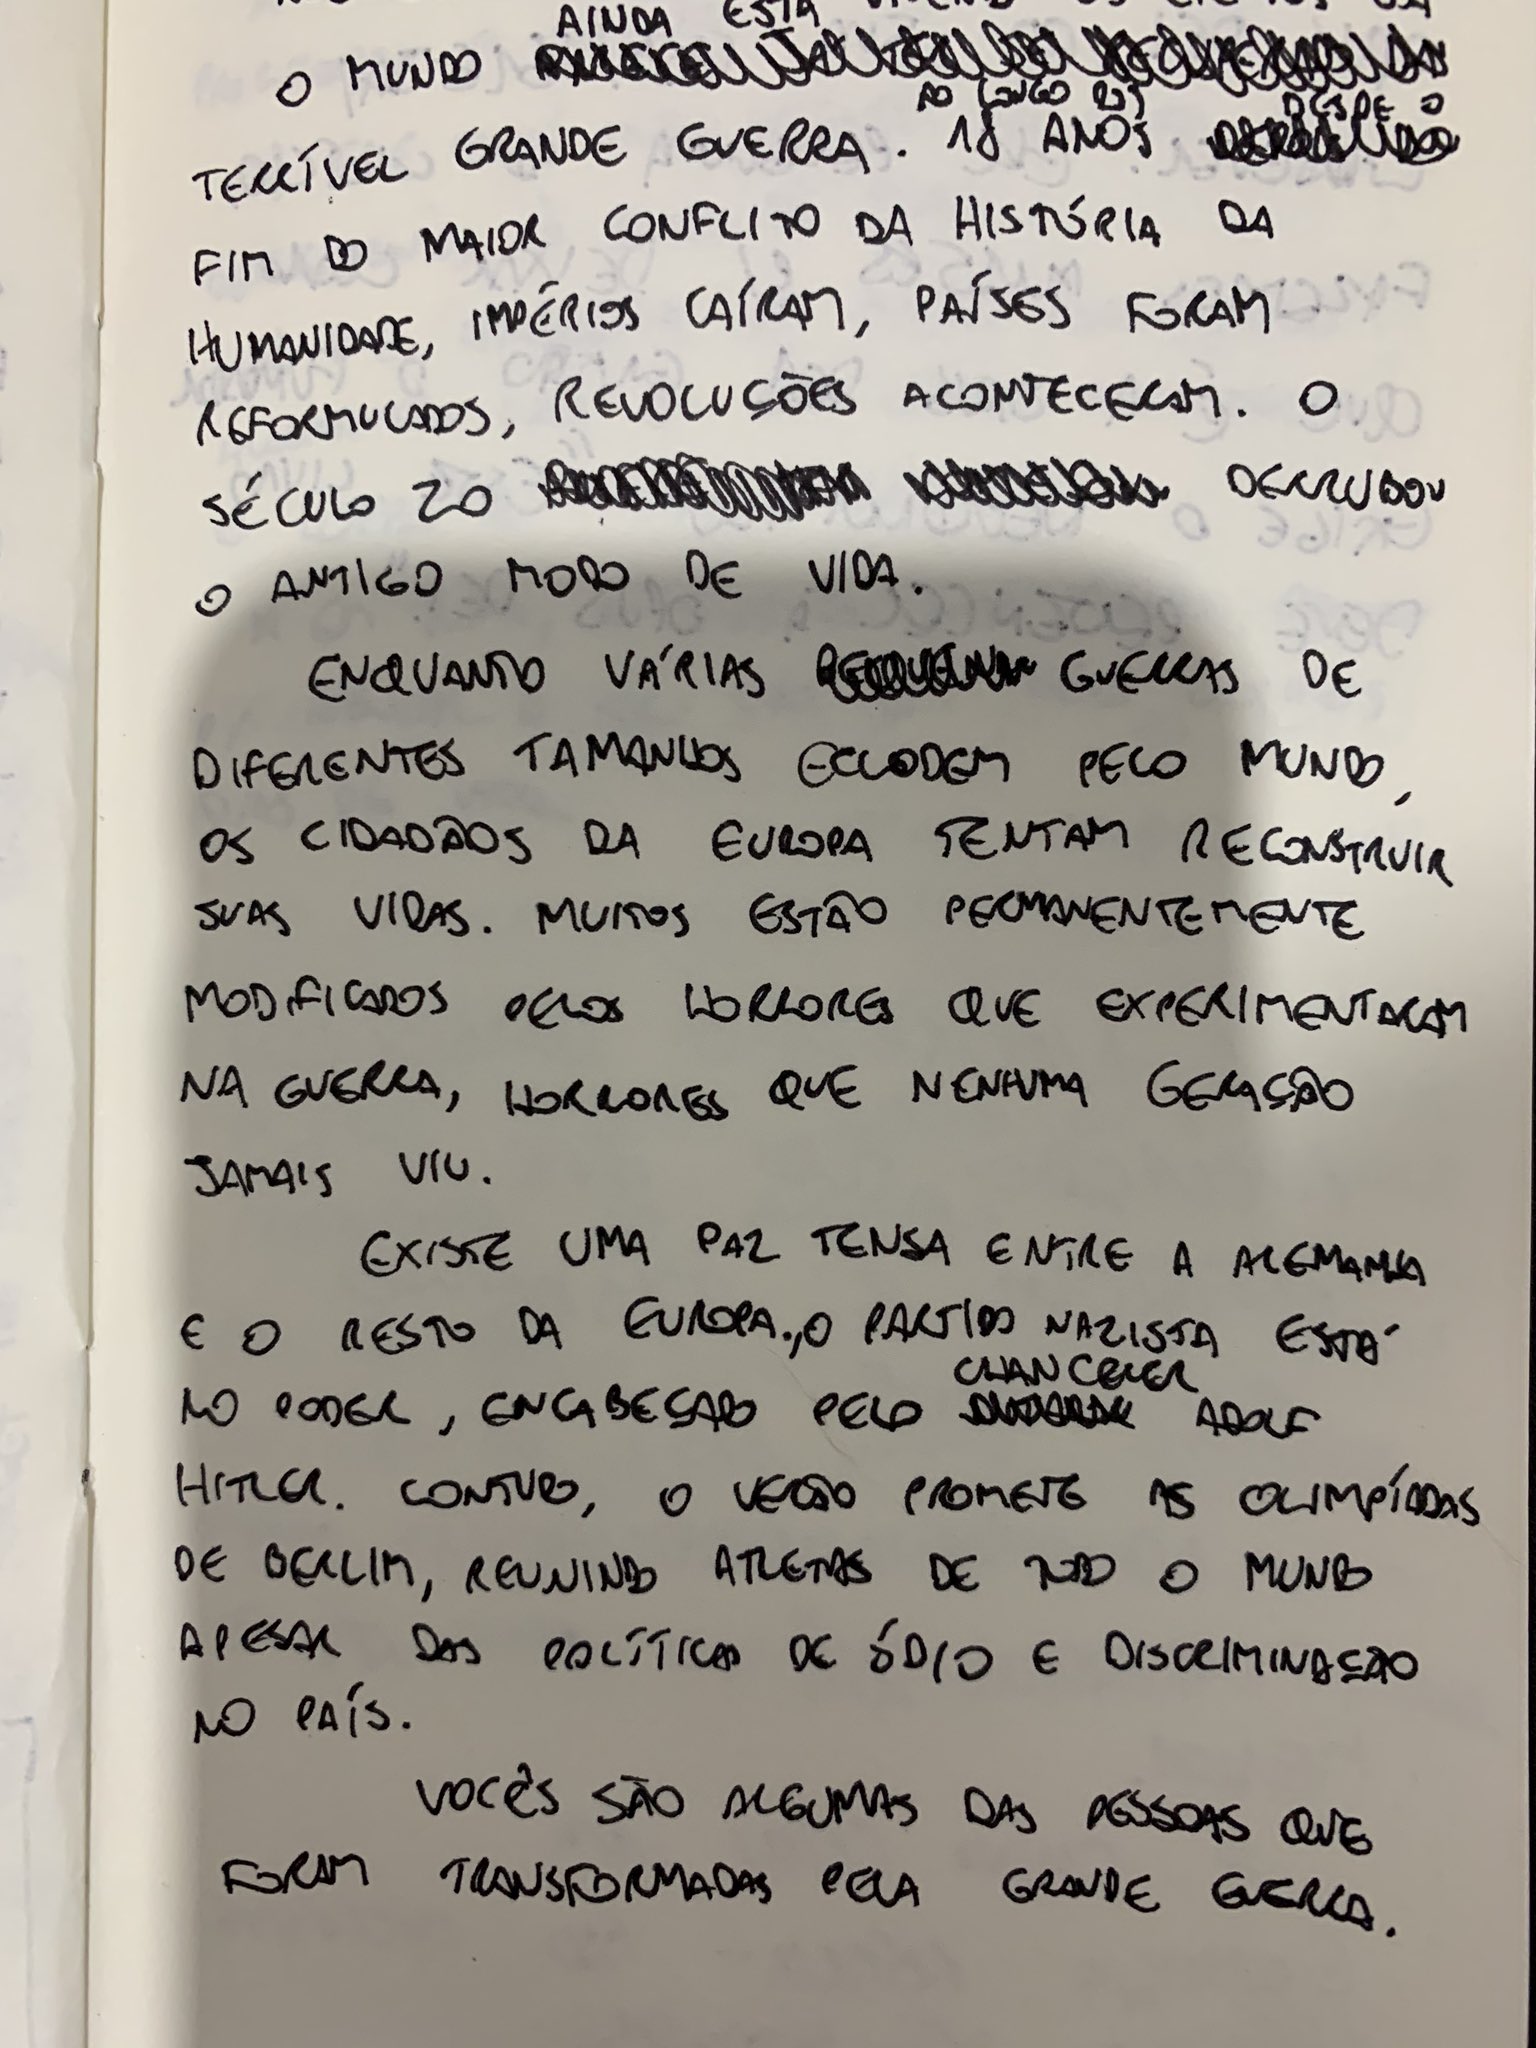 AINDA ESTÁ
O MUNDO
AO LONGO DOS DESDE O
TERRÍVEL GRANDE GUERRA. 18 ANOS
FIM DO MAIOR CONFLITO DA HISTÓRIA DA
HUMANIDADE, IMPÉRIOS CAÍRAM, PAÍSES FORAM
REFORMULADOS, REVOLUÇÕES ACONTECERAM. O
SÉCULO 20 DERRUBOU
O ANTIGO MODO DE VIDA.
ENQUANTO VÁRIAS GUERRAS DE
DIFERENTES TAMANHOS ECLODEM PELO MUNDO,
OS CIDADÃOS DA EUROPA TENTAM RECONSTRUIR
SUAS VIDAS. MUITOS ESTÃO PERMANENTEMENTE
MODIFICADOS PELOS HORRORES QUE EXPERIMENTARAM
NA GUERRA, HORRORES QUE NENHUMA GERAÇÃO
JAMAIS VIU.
EXISTE UMA PAZ TENSA ENTRE A ALEMANHA
E O RESTO DA EUROPA., O PARTIDO NAZISTA ESTÁ
CHANCELER
NO PODER, ENCABEÇADO PELO ADOLF
HITLER. CONTUDO, O VERÃO PROMETE AS OLIMPÍADAS
DE BERLIM, REUNINDO ATLETAS DE TODO O MUNDO
APESAR DAS POLÍTICAS DE ÓDIO E DISCRIMINAÇÃO
NO PAÍS.
VOCÊS SÃO ALGUMAS DAS PESSOAS QUE
FORAM TRANSFORMADAS PELA GRANDE GUERRA.